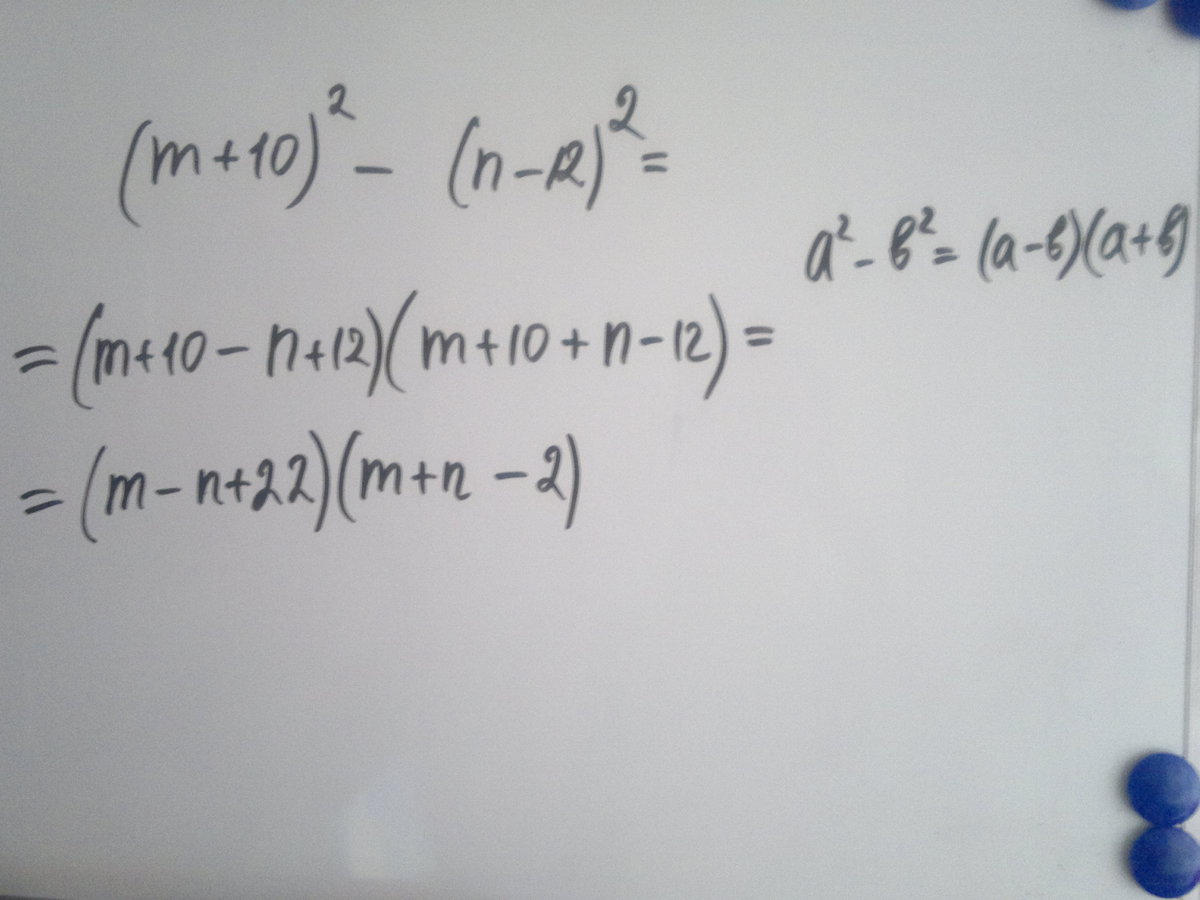 (m+10)² - (n-12)² =
a² - в² = (a-в)(a+в)
= (m+10 - n+12)(m+10+n-12) =
= (m-n+22)(m+n-2)